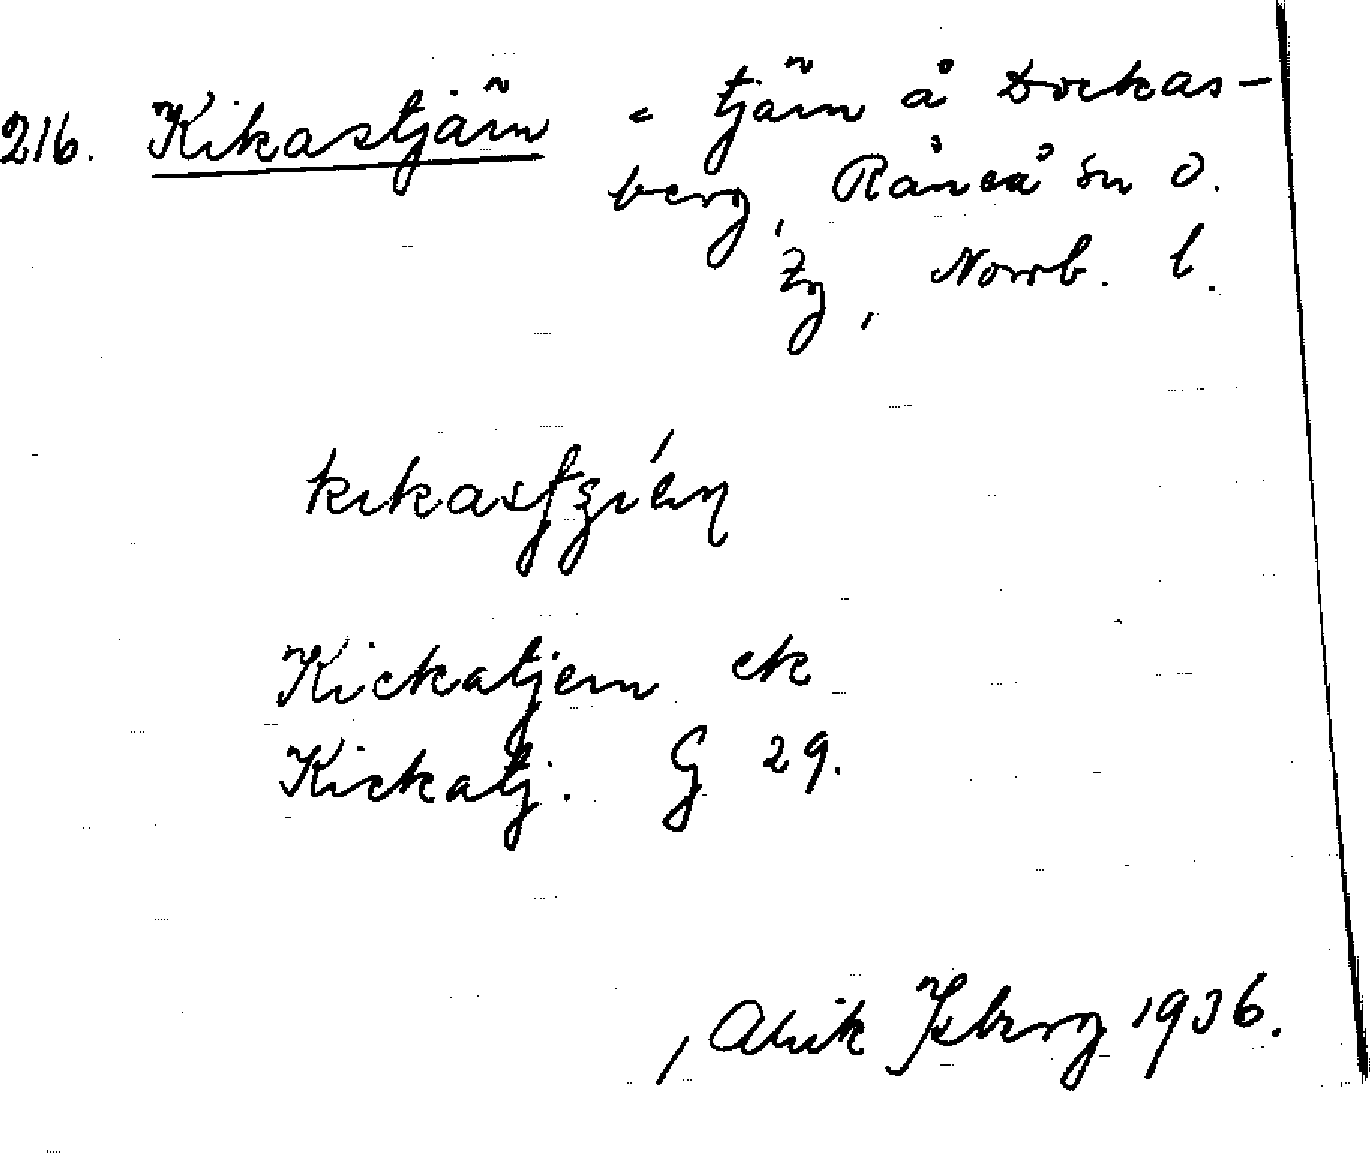 216. Kikastjärn = tjärn å Dockas-
berg, Råneå sn o.
tg, Norrb. l.
kikastjärn
Kickatjern ek
Kickatj. G 29.
Alrik Isberg 1936.